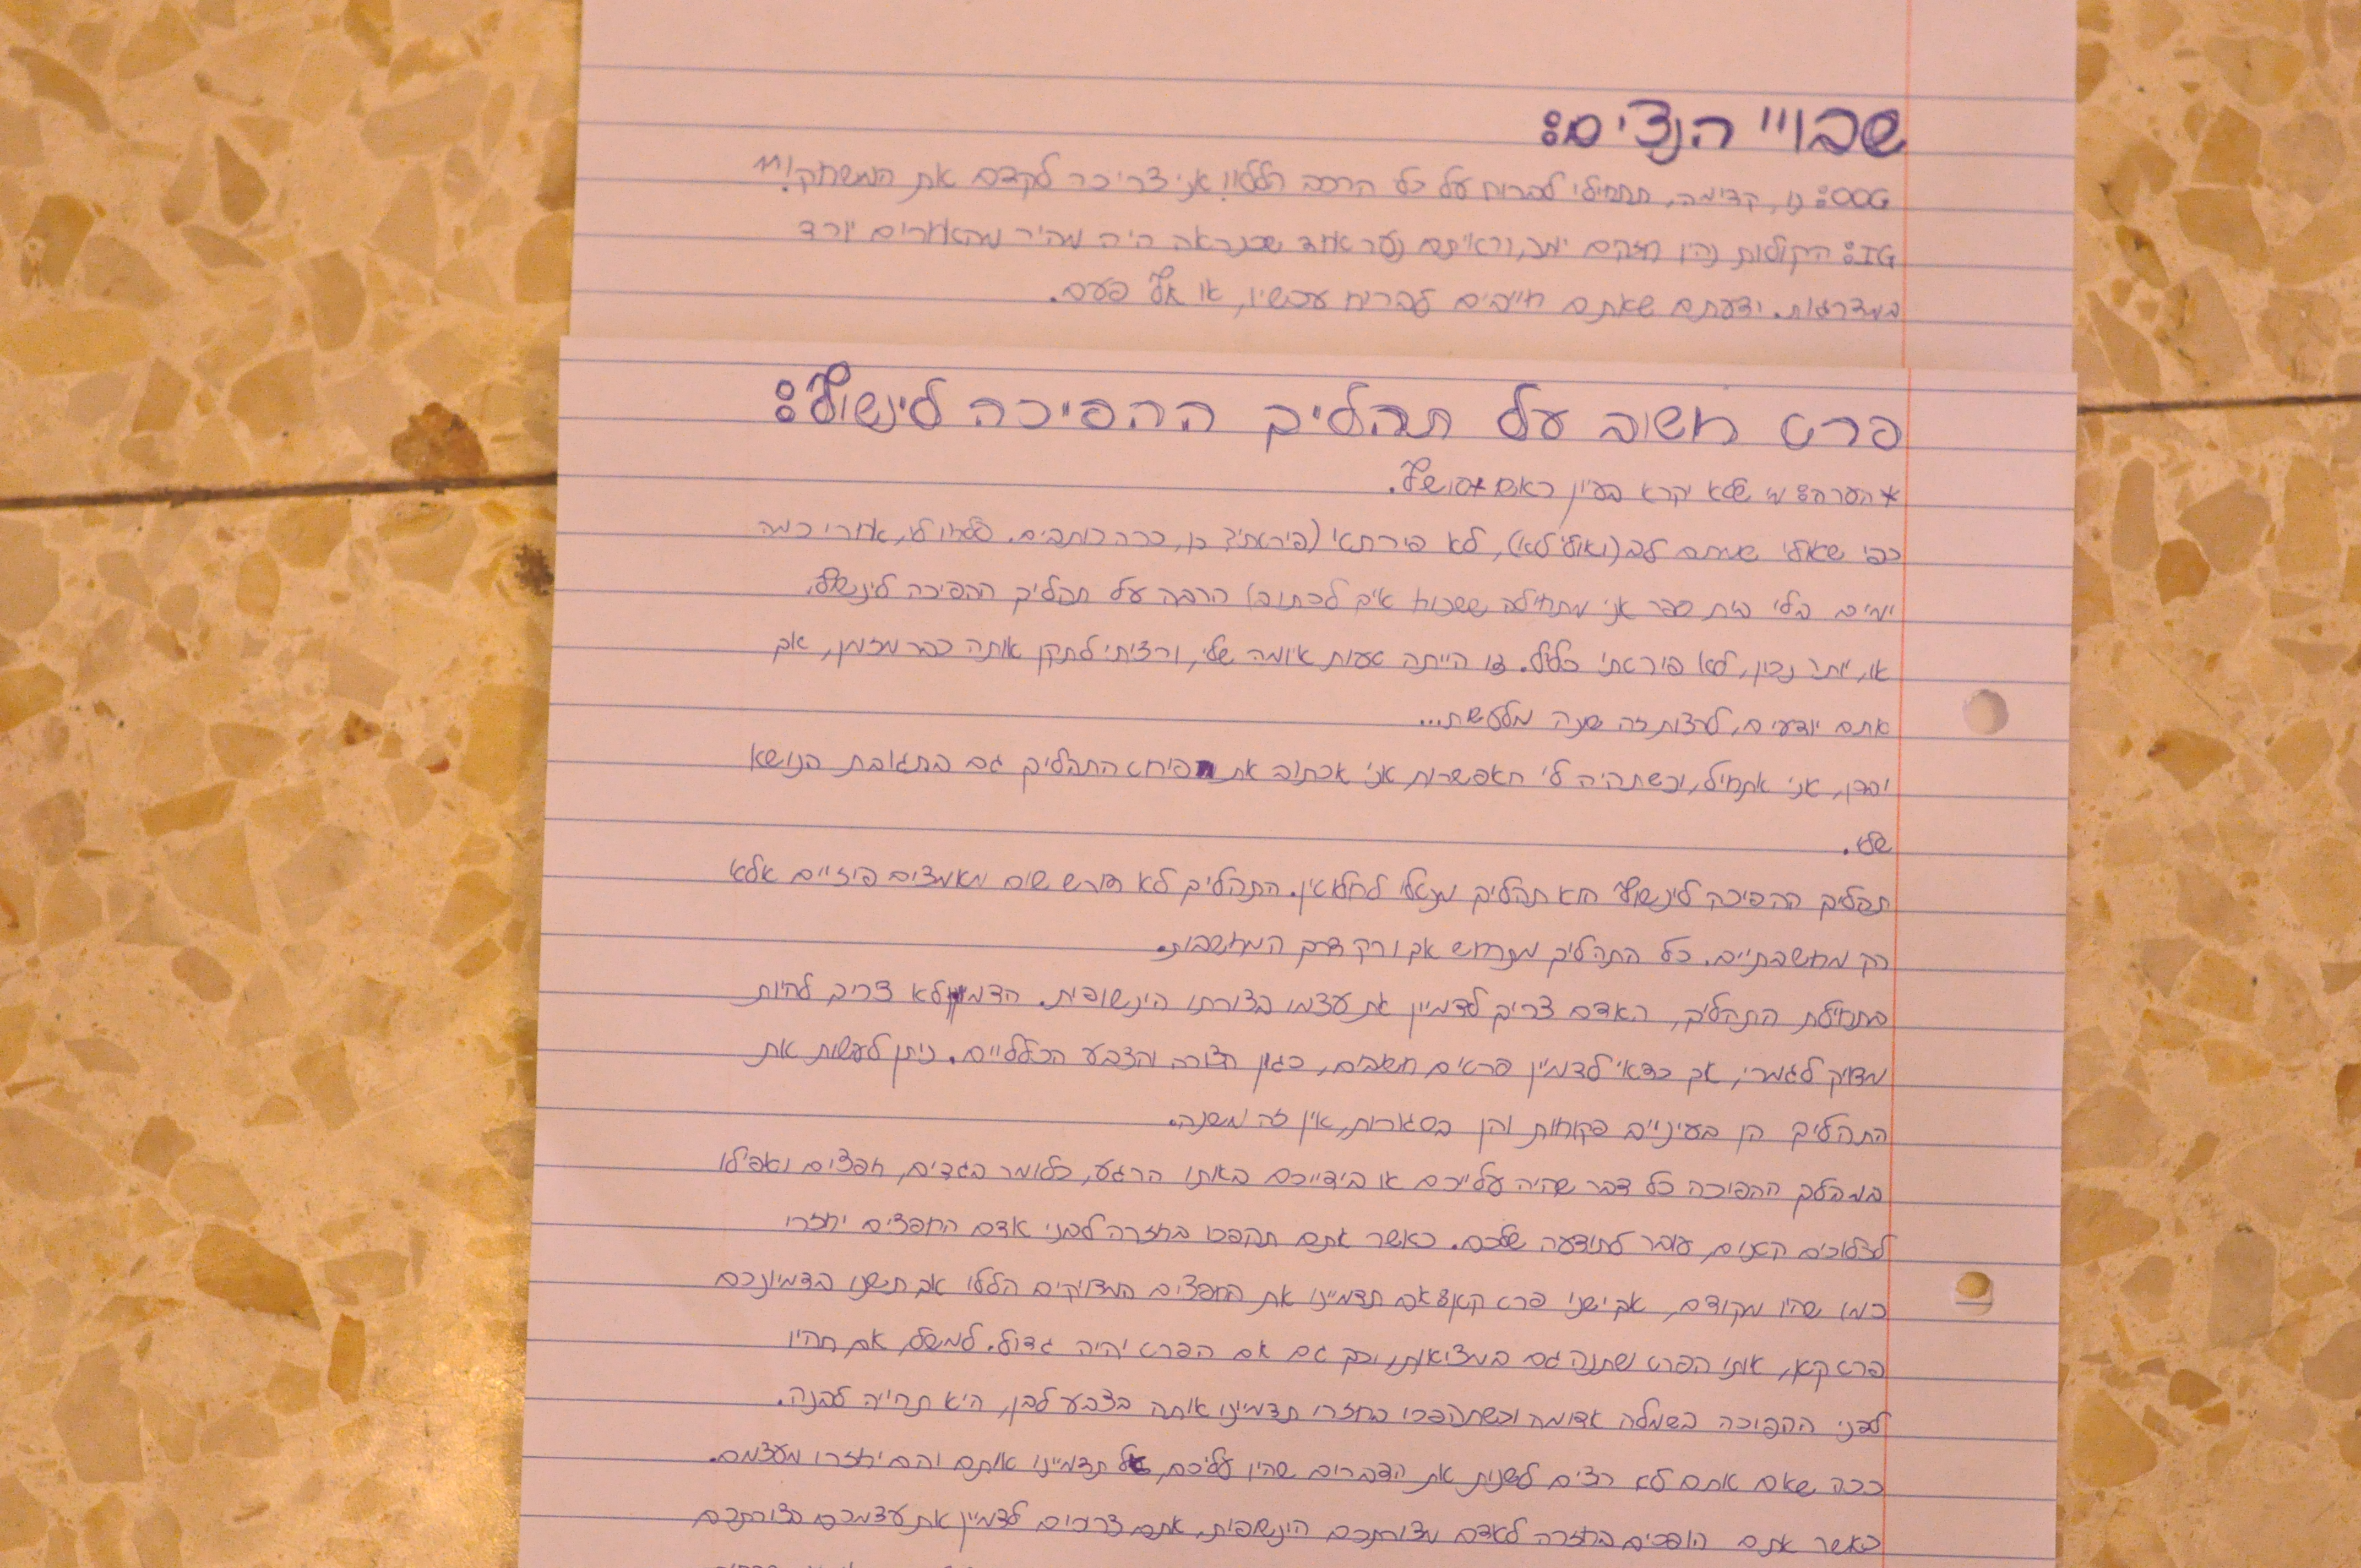 שבויי הנצים:
OOG: נו, קדימה, תתחילי לברוח על כל הרכב הללו! אני צריכה לקדם את המשחק!^^
IG: הקולות נהיו חזקים יותר, וראיתם נער אחד שכנראה היה מהיר מהאחרים יורד
במדרגות. ידעתם שאתם חייבים לברוח עכשיו, או אף פעם.
פרט חשוב על תהליך ההפיכה לינשוף:
*הערה: מי שלא יקרא בעיון ראשו
כפי שאולי שמתם לב (ואולי לא), לא פירתטי (פירטתי? כן, ככה כותבים. סלחו לי, אחרי כמה
ימים בלי בית ספר אני מתחילה לשכוח איך לכתוב) הרבה על תהליך ההפיכה לינשוף.
או, יותר נכון, לא פירטתי כלל. זו הייתה טעות איומה שלי, ורציתי לתקן אותה כבר מזמן, אך
אתם יודעים, לרצות זה שונה מלעשות...
ובכן, אני אתחיל, וכשתהיה לי האפשרות אני אכתוב את פירוט התהליך גם בתגובת הנושא
שלי.
תהליך ההפיכה לינשוף הוא תהליך מנטלי לחלוטין. התהליך לא דורש שום מאמצים פיזיים אלא
רק מחשבתיים. כל התהליך מתרחש אך ורק דרך המחשבות.
בתחילת התהליך, האדם צריך לדמיין את עצמו בצורתו הינשופית. הדמיון לא צריך להיות
מדויק לגמרי, אך כדאי לדמיין פרטים חשובים, כגון הצורה והצבע הכלליים. ניתן לעשות את
התהליך הן בעיניים פקוחות והן בסגורות, אין זה משנה.
במהלך ההפיכה כל דבר שהיה עלייכם או בידייכם באותו הרגע, כלומר בגדים, חפצים ואפילו
לכלוכים קטנים, עובר לתודעה שלכם. כאשר אתם תהפכו בחזרה לבני אדם החפצים יחזרו
כמו שהיו מקודם, אך ישנו פרט קטן: אם תדמיינו את החפצים המדויקים הללו אך תשנו בדמיונכם
פרט קטן, אותו הפרט ישתנה גם במציאות, וכך גם אם הפרט יהיה גדול. למשל, אם תהיו
לפני ההפיכה בשמלה אדומה וכשתהפכו בחזרה תדמיינו אותה בצבע לבן, היא תהייה לבנה.
ככה שאם אתם לא רוצים לשנות את הדברים שהיו עליכם, אל תדמיינו אותם והם יחזרו מעצמם.
כאשר אתם הופכים בחזרה לאדם מצורתכם הינשופית, אתם צריכים לדמיין את עצמכם בצורתכם